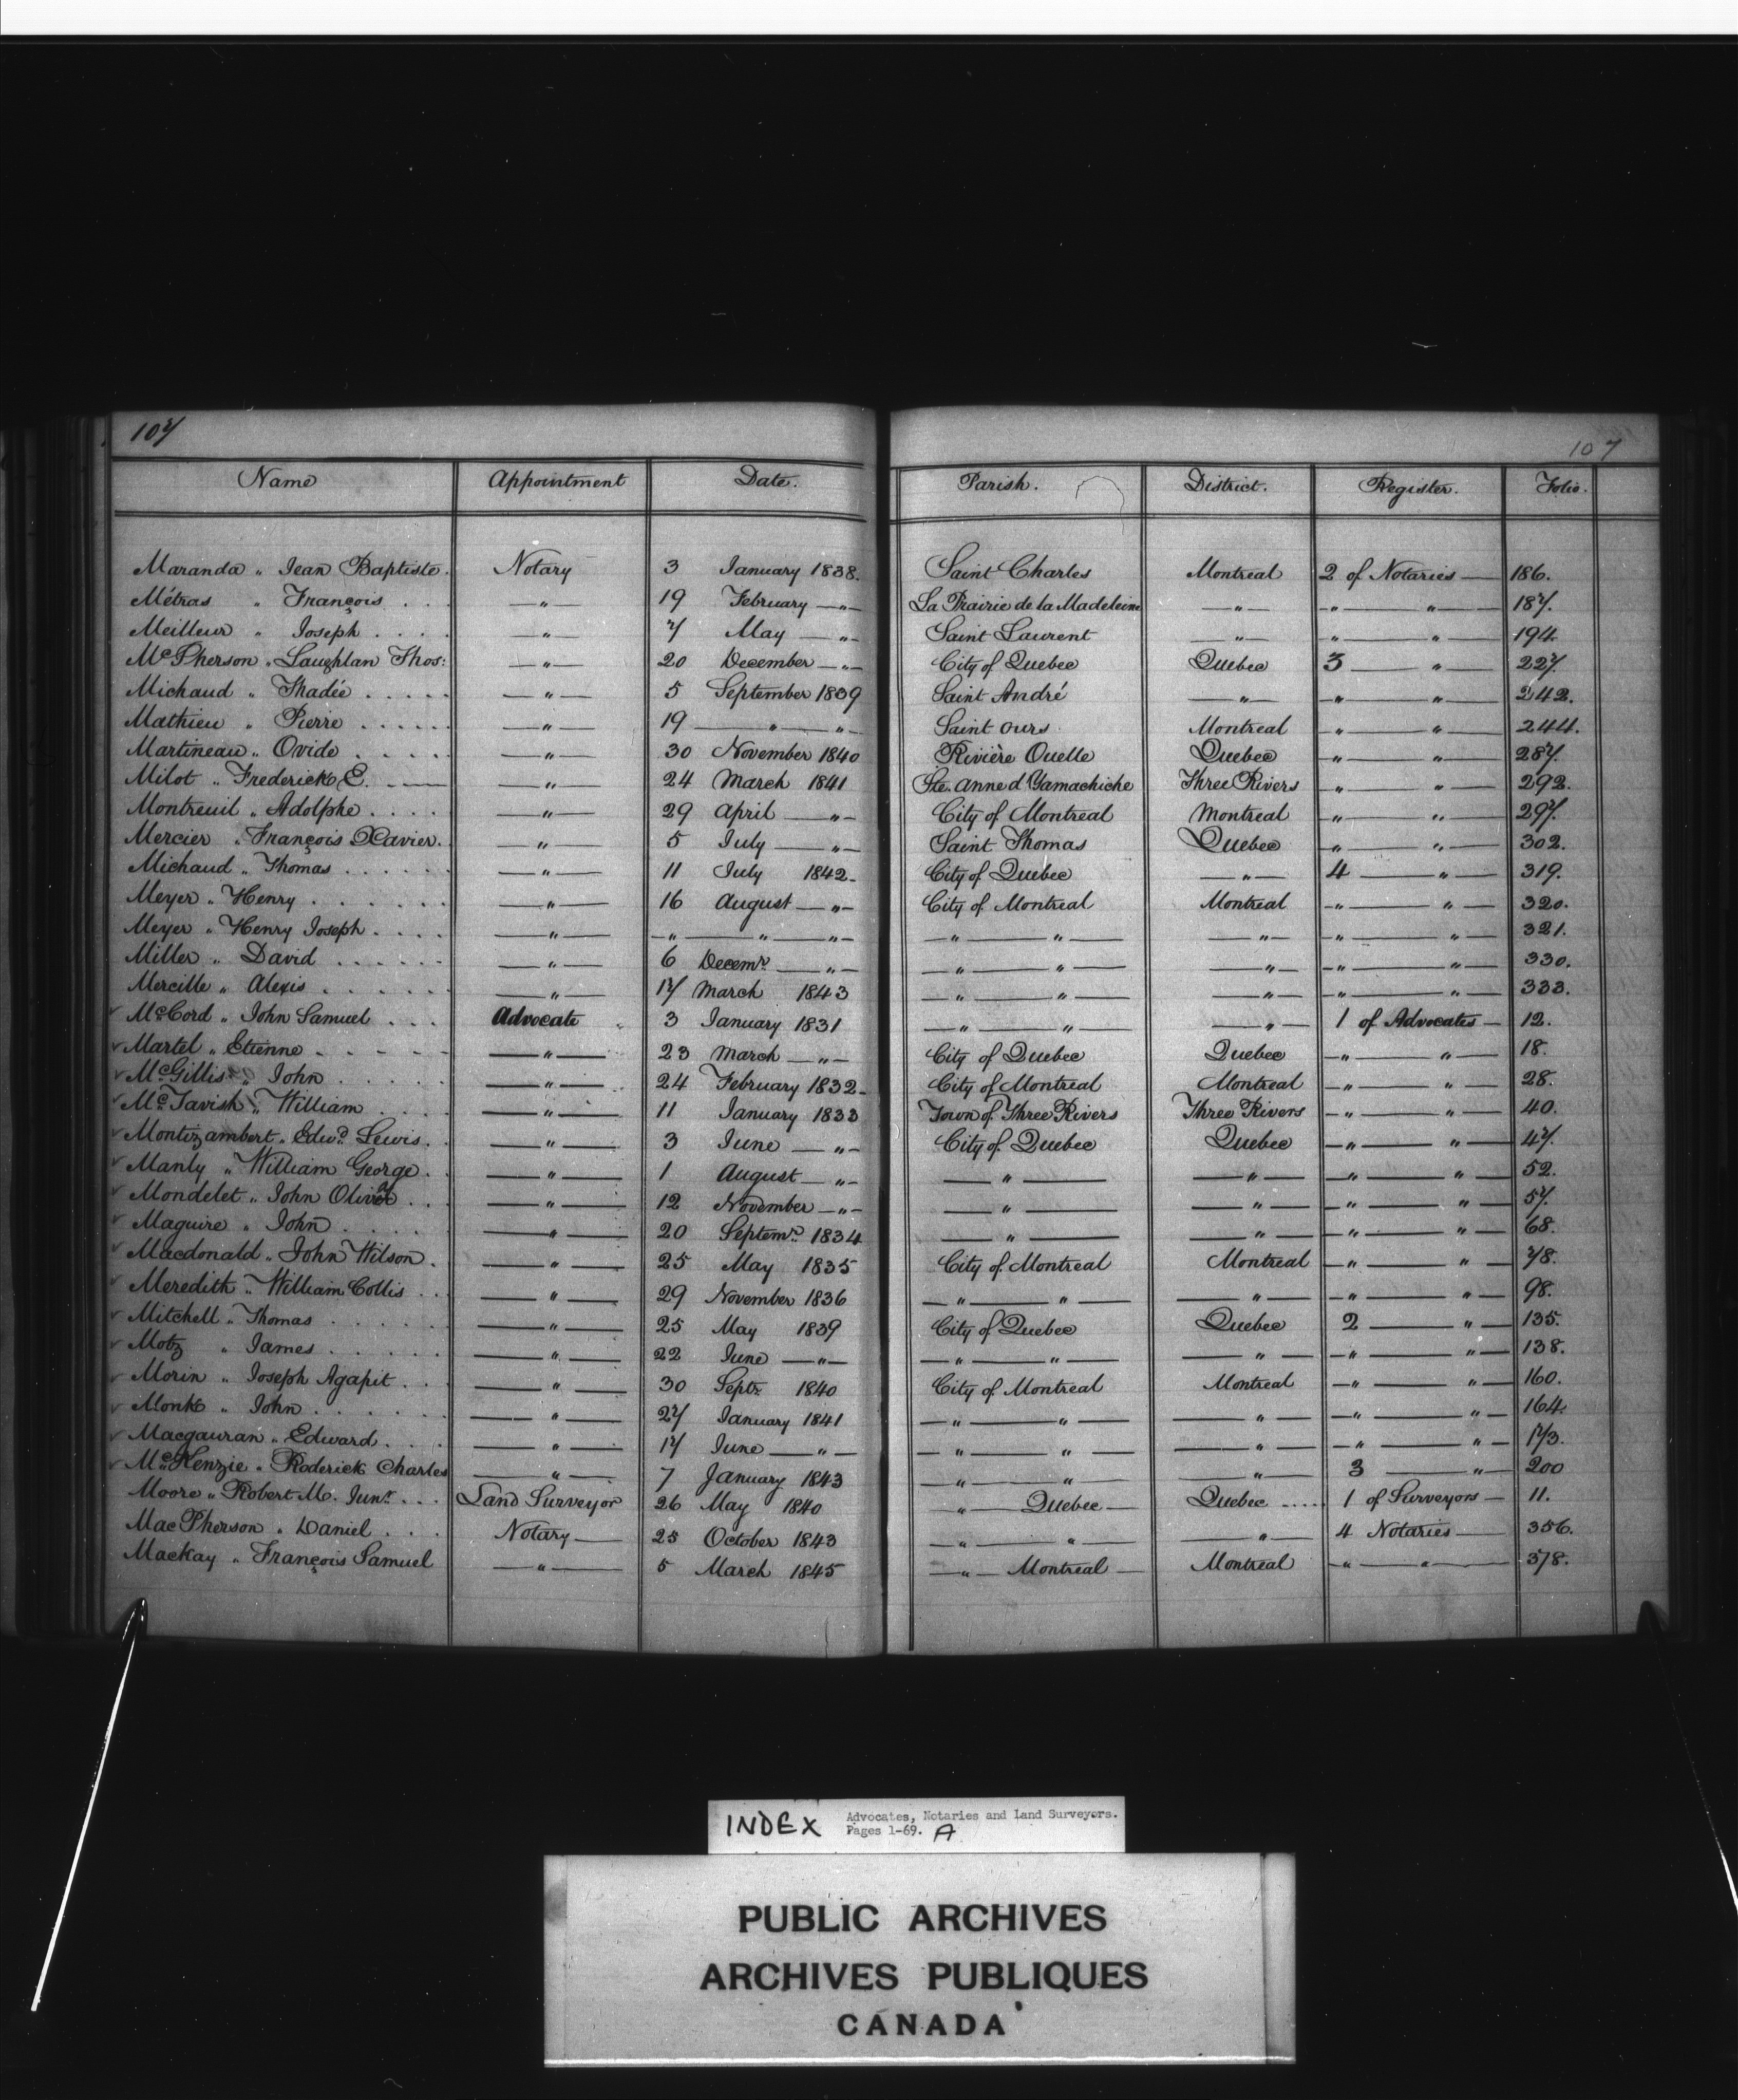 107 107
Name Appointment Date. Parish. District. Register. Folio.
Maranda „ Jean Baptiste. Notary 3 January 1838. Saint Charles Montreal 2 of Notaries — 186.
Métras „ François . . . — „ — 19 February — „ — La Prairie de la Madeleine — „ — — „ — „ — 187.
Meilleur „ Joseph . . . . — „ — 7 May — „ — Saint Laurent — „ — — „ — „ — 194
McPherson „ Laughlan Thos: — „ — 20 December — „ — City of Quebec Quebec 3 — „ — 227.
Michaud „ Thadée . . . . . — „ — 5 September 1839 Saint André — „ — — „ — „ — 242.
Mathieu „ Pierre . . . . . . — „ — 19 — „ — „ — Saint Ours Montreal — „ — „ — 244.
Martineau „ Ovide . . . . . — „ — 30 November 1840 Rivière Ouelle Quebec — „ — „ — 287.
Milot „ Frederick E. . — — „ — 24 March 1841 Ste. Anne d Yamachiche Three Rivers — „ — „ — 292.
Montreuil „ Adolphe . . . . — „ — 29 April — „ — City of Montreal Montreal — „ — „ — 297.
Mercier „ François Xavier. — „ — 5 July — „ — Saint Thomas Quebec — „ — „ — 302.
Michaud „ Thomas . . . . . . — „ — 11 July 1842. City of Quebec — „ — 4 — „ — 319.
Meyer „ Henry . . . . . . . — „ — 16 August — „ — City of Montreal Montreal — „ — „ — 320.
Meyer „ Henry Joseph . . . . — „ — — „ — „ — „ — — „ — „ — — „ — — „ — „ — 321.
Miller „ David . . . . . . — „ — 6 Decemr. — „ — — „ — „ — — „ — — „ — „ — 330.
Mercille „ Alexis . . . . . . — „ — 17 March 1843 — „ — „ — — „ — — „ — „ — 333.
McCord „ John Samuel . . . Advocate 3 January 1831 — „ — „ — — „ — 1 of Advocates — 12.
Martel „ Etienne . . . . . — „ — 23 March — „ — City of Quebec Quebec — „ — „ — 18.
McGillis „ John . . . . . — „ — 24 February 1832. City of Montreal Montreal — „ — „ — 28.
McTavish „ William . . . . — „ — 11 January 1833 Town of Three Rivers Three Rivers — „ — „ — 40.
Montizambert „ Edwd. Lewis. . — „ — 3 June — „ — City of Quebec Quebec — „ — „ — 47.
Manly „ William George . . — „ — 1 August — „ — — „ — — „ — — „ — „ — 52.
Mondelet „ John Oliver . . . — „ — 12 November — „ — — „ — — „ — — „ — „ — 57.
Maguire „ John . . . . . — „ — 20 Septemr. 1834 — „ — — „ — — „ — „ — 68.
Macdonald „ John Wilson. . — „ — 25 May 1835 City of Montreal Montreal — „ — „ — 78.
Meredith „ William Collis . . — „ — 29 November 1836 — „ — „ — — „ — — „ — „ — 98.
Mitchell „ Thomas . . . . . . — „ — 25 May 1839 City of Quebec Quebec 2 — „ — 135.
Motz „ James . . . . . . — „ — 22 June — „ — — „ — „ — — „ — — „ — „ — 138.
Morin „ Joseph Agapit . . . — „ — 30 Septr. 1840 City of Montreal Montreal — „ — „ — 160.
Monk „ John . . . . . . — „ — 27 January 1841 — „ — „ — — „ — — „ — „ — 164.
Macgauran „ Edward . . . . — „ — 17 June — „ — — „ — „ — — „ — — „ — „ — 173.
McKenzie „ Roderick Charles — „ — 7 January 1843 — „ — „ — — „ — 3 — „ — 200
Moore „ Robert M. Junr. . . . Land Surveyor 26 May 1840 — „ Quebec — Quebec .... 1 of Surveyors — 11.
MacPherson „ Daniel . . . Notary — 25 October 1843 — „ — „ — — „ — 4 Notaries — 356.
Mackay „ François Samuel — „ — 5 March 1845 — „ — Montreal — Montreal — „ — „ — 378.
INDEX Advocates, Notaries and Land Surveyors.
Pages 1-69. A
PUBLIC ARCHIVES
ARCHIVES PUBLIQUES
CANADA